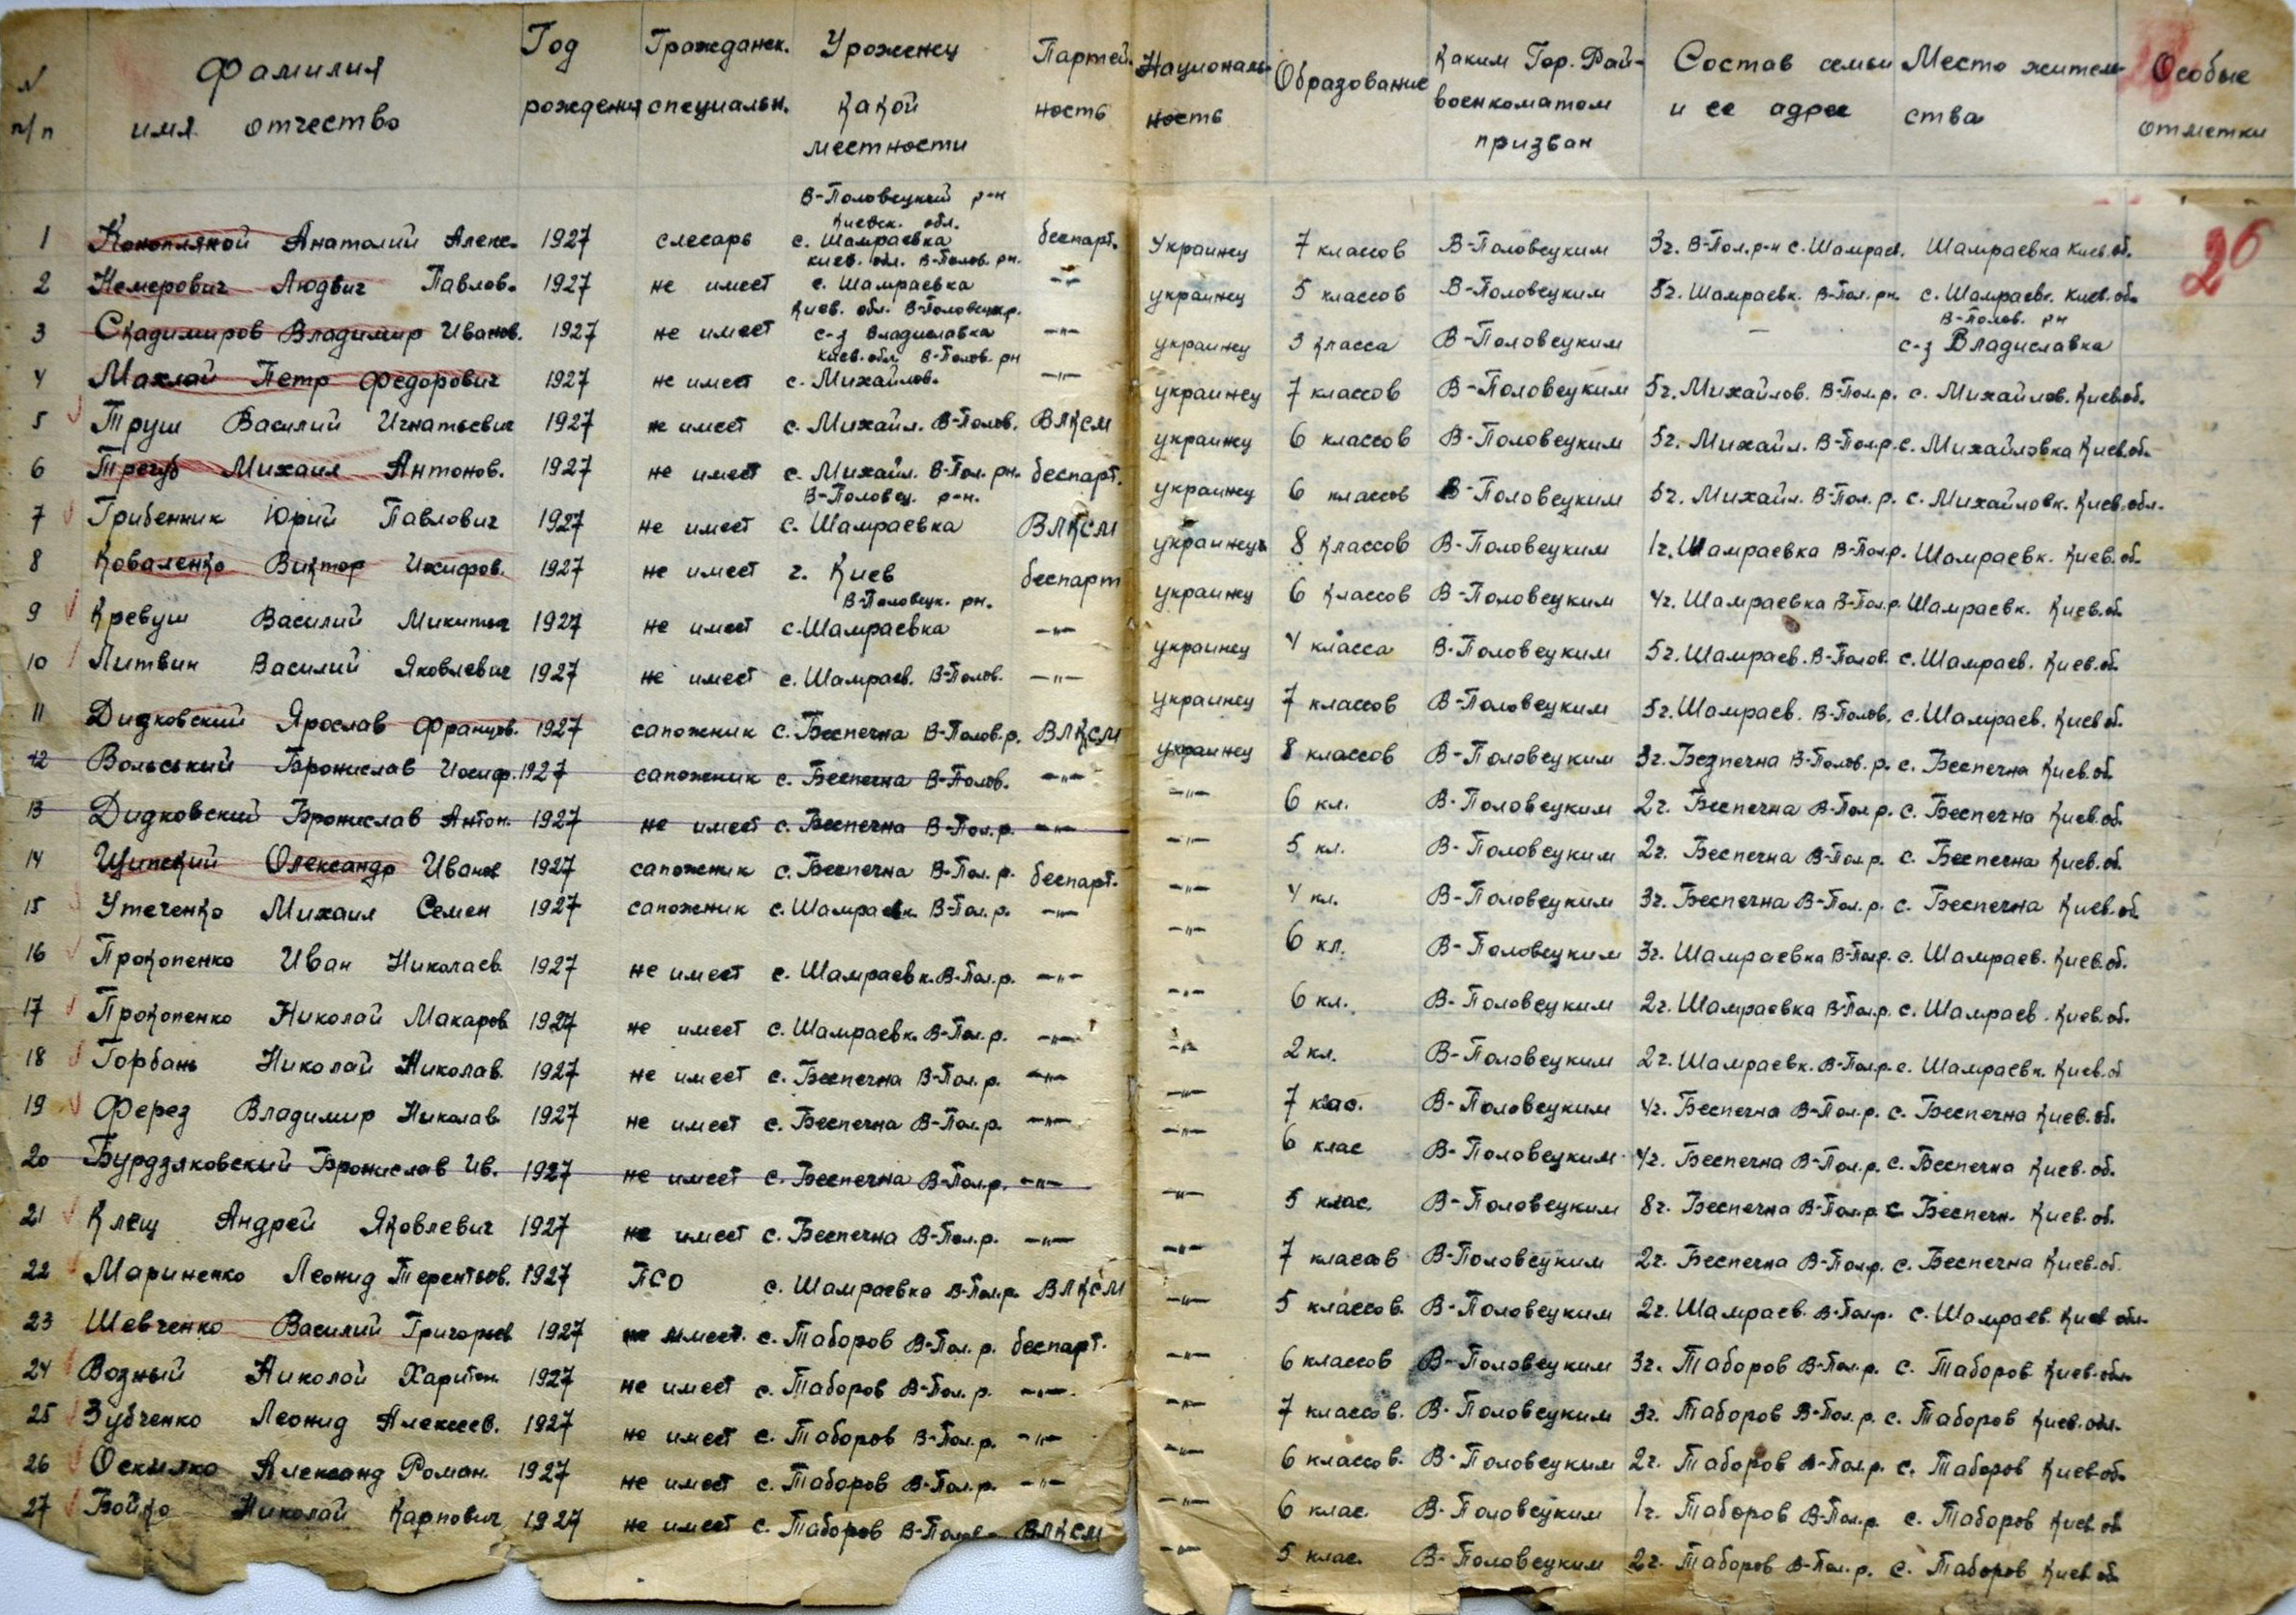 N п/п Фамилия имя отчество Год рождения Гражданск. специальн. Уроженец какой местности Партей- ность Националь- ность Образование Каким Гор. Рай- военкоматом призван Состав семьи и ее адрес Место житель- ства Особые отметки
В-Половецкий р-н
Киевск. обл.
1 Конопляной Анатолий Алекс. 1927 слесарь с. Шамраевка беспарт. Украинец 7 классов В-Половецким 3ч. В-Пол.р-н с. Шамраев. Шамраевка Киев.об. 26
Киев. обл. В-Полов. рн.
2 Немерович Людвиг Павлов. 1927 не имеет с. Шамраевка -"- украинец 5 классов В-Половецким 5ч. Шамраевк. В-Пол.рн. с. Шамраевк. Киев.об.
Киев. обл. В-Половецк.р. В-Полов. рн
3 Скадимиров Владимир Иванов. 1927 не имеет с-з Владиславка -"- украинец 3 класса В-Половецким — с-з Владиславка
Киев.обл. В-Полов. рн
4 Махлай Петр Федорович 1927 не имеет с. Михайлов. -"- украинец 7 классов В-Половецким 5ч. Михайлов. В-Пол.р. с. Михайлов. Киев.об.
5 Труш Василий Игнатьевич 1927 не имеет с. Михайл. В-Полов. ВЛКСМ украинец 6 классов В-Половецким 5ч. Михайл. В-Пол.р. с. Михайловка Киев.об.
6 Трегуб Михаил Антонов. 1927 не имеет с. Михайл. В-Пол. рн. беспарт. украинец 6 классов В-Половецким 5ч. Михайл. В-Пол.р. с. Михайловк. Киев.обл.
В-Половец. р-н.
7 Грибенник Юрий Павлович 1927 не имеет с. Шамраевка ВЛКСМ украинец 8 классов В-Половецким 1ч. Шамраевка В-Пол.р. Шамраевк. Киев.об.
8 Коваленко Виктор Иосифов. 1927 не имеет г. Киев беспарт украинец 6 классов В-Половецким 4ч. Шамраевка В-Пол.р. Шамраевк. Киев.об.
В-Половецк. рн.
9 Кревуш Василий Микитич 1927 не имеет с.Шамраевка -"- украинец 4 класса В-Половецким 5ч. Шамраев. В-Полов. с. Шамраев. Киев.об.
10 Литвин Василий Яковлевич 1927 не имеет с. Шамраев. В-Полов. -"- украинец 7 классов В-Половецким 5ч. Шамраев. В-Полов. с. Шамраев. Киев об.
11 Дидковский Ярослав Францев. 1927 сапожник с. Беспечна В-Полов.р. ВЛКСМ украинец 8 классов В-Половецким 3ч. Безпечна В-Полов. р. с. Беспечна Киев.об.
12 Вольський Бронислав Иосиф. 1927 сапожник с. Беспечна В-Полов. -"- -"- 6 кл. В-Половецким 2ч. Беспечна В-Пол.р. с. Беспечна Киев.об.
13 Дидковский Бронислав Антон. 1927 не имеет с. Беспечна В-Пол.р. -"- -"- 5 кл. В-Половецким 2ч. Беспечна В-Пол.р. с. Беспечна Киев.об.
14 Щипский Олександр Иванов 1927 сапожник с. Беспечна В-Пол. р. беспарт. -"- 4 кл. В-Половецким 3ч. Беспечна В-Пол.р. с. Беспечна Киев.об.
15 Утеченко Михаил Семен 1927 сапожник с. Шамраевк. В-Пол.р. -"- -"- 6 кл. В-Половецким 3ч. Шамраевка В-Пол.р. с. Шамраев. Киев.об.
16 Прокопенко Иван Николаев. 1927 не имеет с. Шамраевк. В-Пол.р. -"- -"- 6 кл. В-Половецким 2ч. Шамраевка В-Пол.р. с. Шамраев. Киев.об.
17 Прокопенко Николай Макаров 1927 не имеет с. Шамраевк. В-Пол.р. -"- -"- 2 кл. В-Половецким 2ч. Шамраевк. В-Пол.р. с. Шамраевк. Киев.об
18 Горбань Николай Николав. 1927 не имеет с. Беспечна В-Пол.р. -"- -"- 7 клас. В-Половецким 4ч. Беспечна В-Пол.р. с. Беспечна Киев.об.
19 Ферез Владимир Николав. 1927 не имеет с. Беспечна В-Пол.р. -"- -"- 6 клас В-Половецким 4ч. Беспечна В-Пол.р. с. Беспечна Киев.об.
20 Бурдзяковский Бронислав Ив. 1927 не имеет с. Беспечна В-Пол.р. -"- -"- 5 клас. В-Половецким 8ч. Беспечна В-Пол.р. с Беспечн. Киев.об.
21 Клещ Андрей Яковлевич 1927 не имеет с. Беспечна В-Пол.р. -"- -"- 7 классов В-Половецким 2ч. Беспечна В-Пол.р. с. Беспечна Киев.об.
22 Мариненко Леонид Терентьев. 1927 ПСО с. Шамраевка В-Пол.р. ВЛКСМ -"- 5 классов. В-Половецким 2ч. Шамраев. В-Пол.р. с. Шамраев. Киев обл.
23 Шевченко Василий Григорьев 1927 не имеет. с. Таборов В-Пол. р. беспарт. -"- 6 классов В-Половецким 3ч. Таборов В-Пол.р. с. Таборов Киев.обл.
24 Возный Николай Харитон. 1927 не имеет с. Таборов В-Пол. р. -"- -"- 7 классов. В-Половецким 3ч. Таборов В-Пол. р. с. Таборов Киев.обл.
25 Зубченко Леонид Алексеев. 1927 не имеет с. Таборов В-Пол.р. -"- -"- 6 классов. В-Половецким 2ч. Таборов В-Пол.р. с. Таборов Киев.об.
26 Оскилко Александ Роман. 1927 не имеет с. Таборов В-Пол.р. -"- -"- 6 клас. В-Половецким 1ч. Таборов В-Пол.р. с. Таборов Киев.об
27 Бойко Николай Карпович 1927 не имеет с. Таборов В-Полов- ВЛКСМ -"- 5 клас. В-Половецким 2ч. Таборов В-Пол.р. с. Таборов Киев.об.